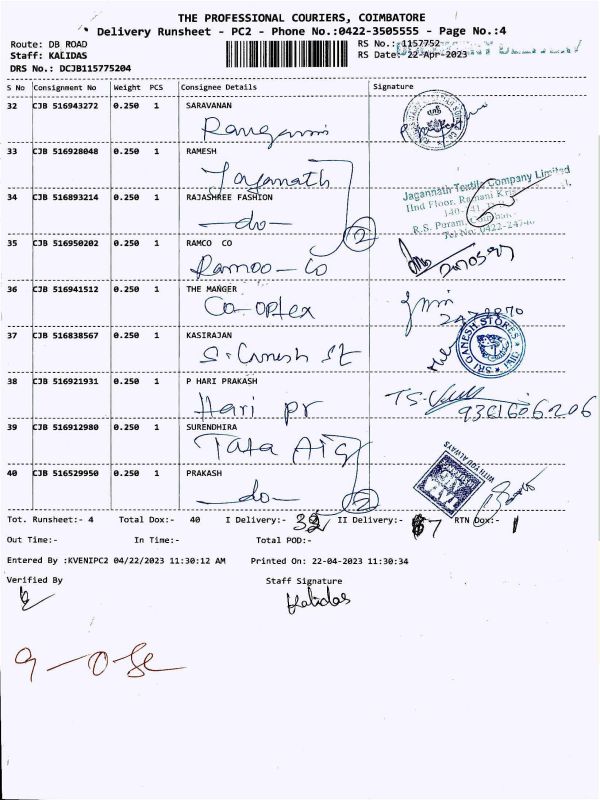 THE PROFESSIONAL COURIERS, COIMBATORE
Delivery Runsheet - PC2 - Phone No.:0422-3505555 - Page No.:4
Route: DB ROAD
RS No.: 1157752
Staff: KALIDAS
RS Date: 22-Apr-2023
DRS No.: DCJB115775204
S No Consignment No Weight PCS Consignee Details Signature
32 CJB 516943272 0.250 1 SARAVANAN
33 CJB 516928048 0.250 1 RAMESH
Jaganath
34 CJB 516893214 0.250 1 RAJASHREE FASHION
Jagannath Textile Company Limited
IInd Floor,
-do-
R.S. Puram,
2
35 CJB 516950202 0.250 1 RAMCO CO
Ramoo - Co
36 CJB 516941512 0.250 1 THE MANGER
Co-optex
37 CJB 516838567 0.250 1 KASIRAJAN
SRI GANESH STORES
38 CJB 516921931 0.250 1 P HARI PRAKASH
Hari pr
9361606206
39 CJB 516912980 0.250 1 SURENDHIRA
Tata AIG
WITH YOU ALWAYS
40 CJB 516529950 0.250 1 PRAKASH
-do-
2
Tot. Runsheet:- 4 Total Dox:- 40 I Delivery:- 32 II Delivery:- 7 RTN Dox:- 1
Out Time:- In Time:- Total POD:-
Entered By :KVENIPC2 04/22/2023 11:30:12 AM Printed On: 22-04-2023 11:30:34
Verified By Staff Signature
Kalidas